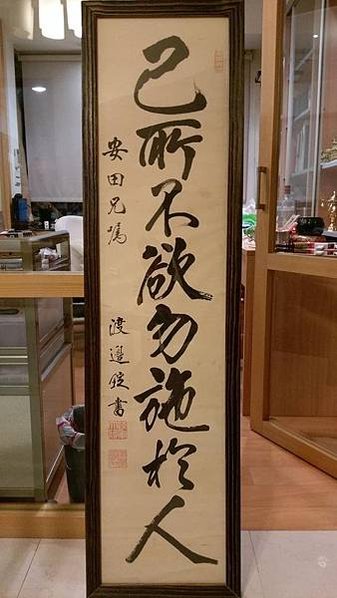 己所不欲勿施於人
安田兄嘱
渡邉錠書